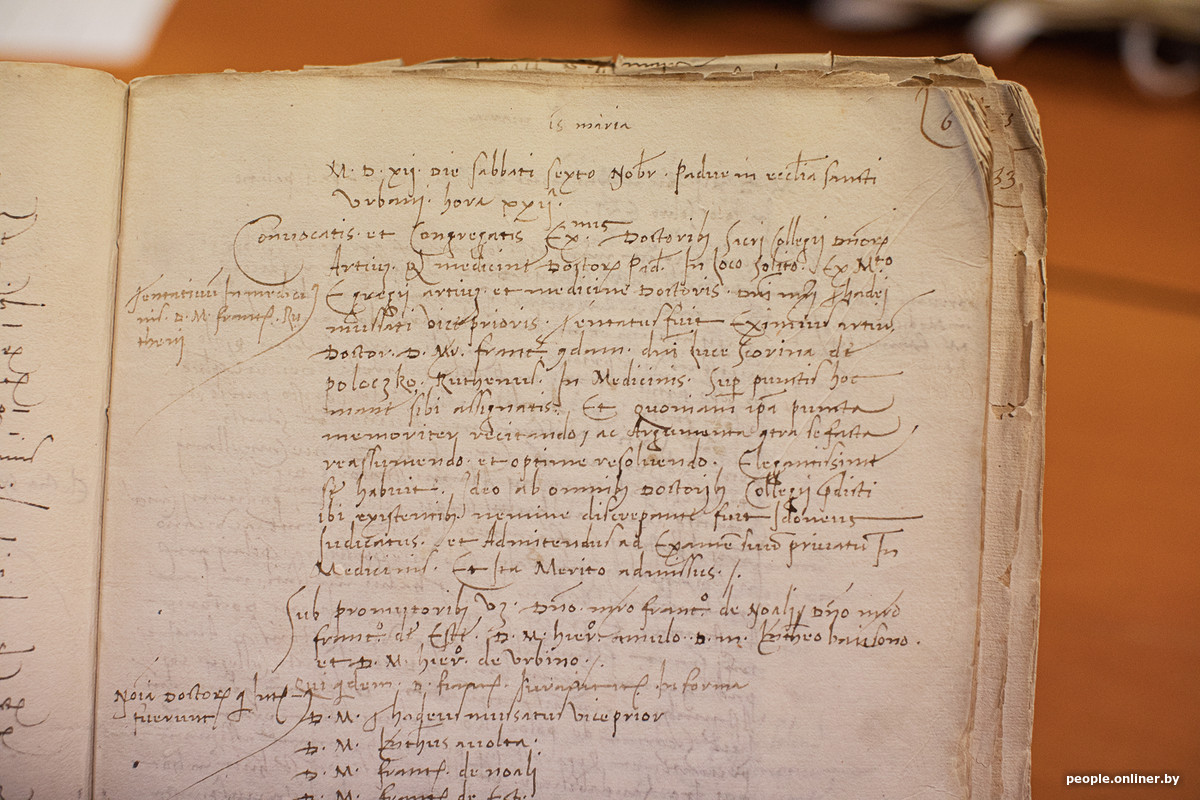 is maria
6
33
M. D. xij. Die Sabbati sexto Nobr. Padue in ecclia Sancti
Urbani. hora xxij.
Convocatis. et Congregatis Ex.mis Doctorib Sacri Collegij Dnorp
Artiu. & medicine Doctorp Pad. In loco solito. Ex Mto
Tentativu In medici
nis. D. M. Franc. Ru
theni
Egregij artiu. et medicine Doctoris. Dni mri Thadei
mussati vice prioris. Tentatus fuit Eximius artiu
Doctor. D. Mr. franc. qdam. dni luce Scorina de
poloczko. Ruthenus. In Medicinis. Sup punctis hoc
mane sibi assignatis. Et quoniam ipa puncta
memoriter recitando, ac Argumenta qtra se facta
reassumendo. et optime resolvendo. Elegantissime
se habuit. Ideo ab omnib Doctorib Collegij pdicti
ibi existentib. nemine discrepante fuit Idoneus
Judicatus. et Admitendus ad Examen suu privatu In
Medicinis. Et Ita Merito admissus.
Sub promotorib vz. Dno. mro franc.o de Noalj Dno mro
franc.o de Este. D. M. hier.o amulo. D. m. Bartheo barisono.
et D. M. hier.o de Urbino.
In forma
Noia Doctorp q Int
fuerunt
D. M. Thadeus mussatus viceprior
D. M.
D. M. franc. de noali
D. M. franc. de Est.
people.onliner.by